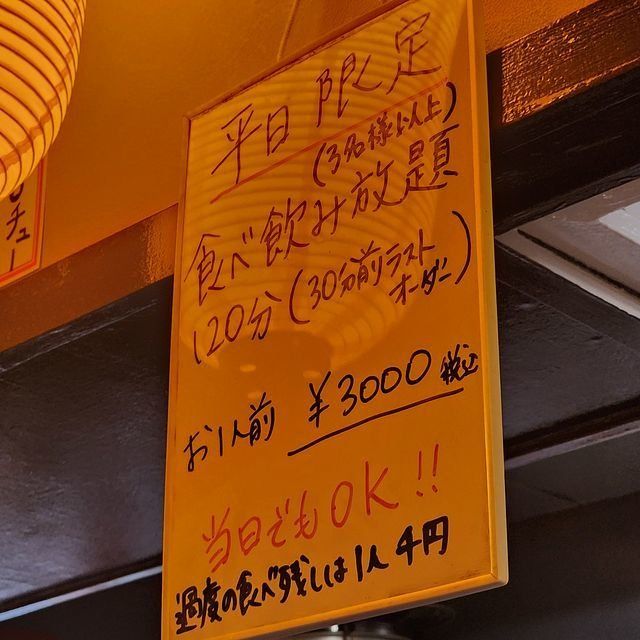 平日限定
(3名様以上)
食べ飲み放題
120分(30分前ラスト
オーダー)
お1人前 ¥3000税込
当日でもOK!!
過度の食べ残しは1人4円
チュー